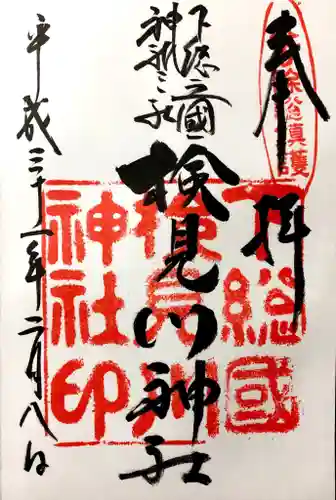 奉拝
八方除総鎮護
下総之國
神祇三社
検見川神社
下総國
検見川
神社印
平成三十一年二月八日